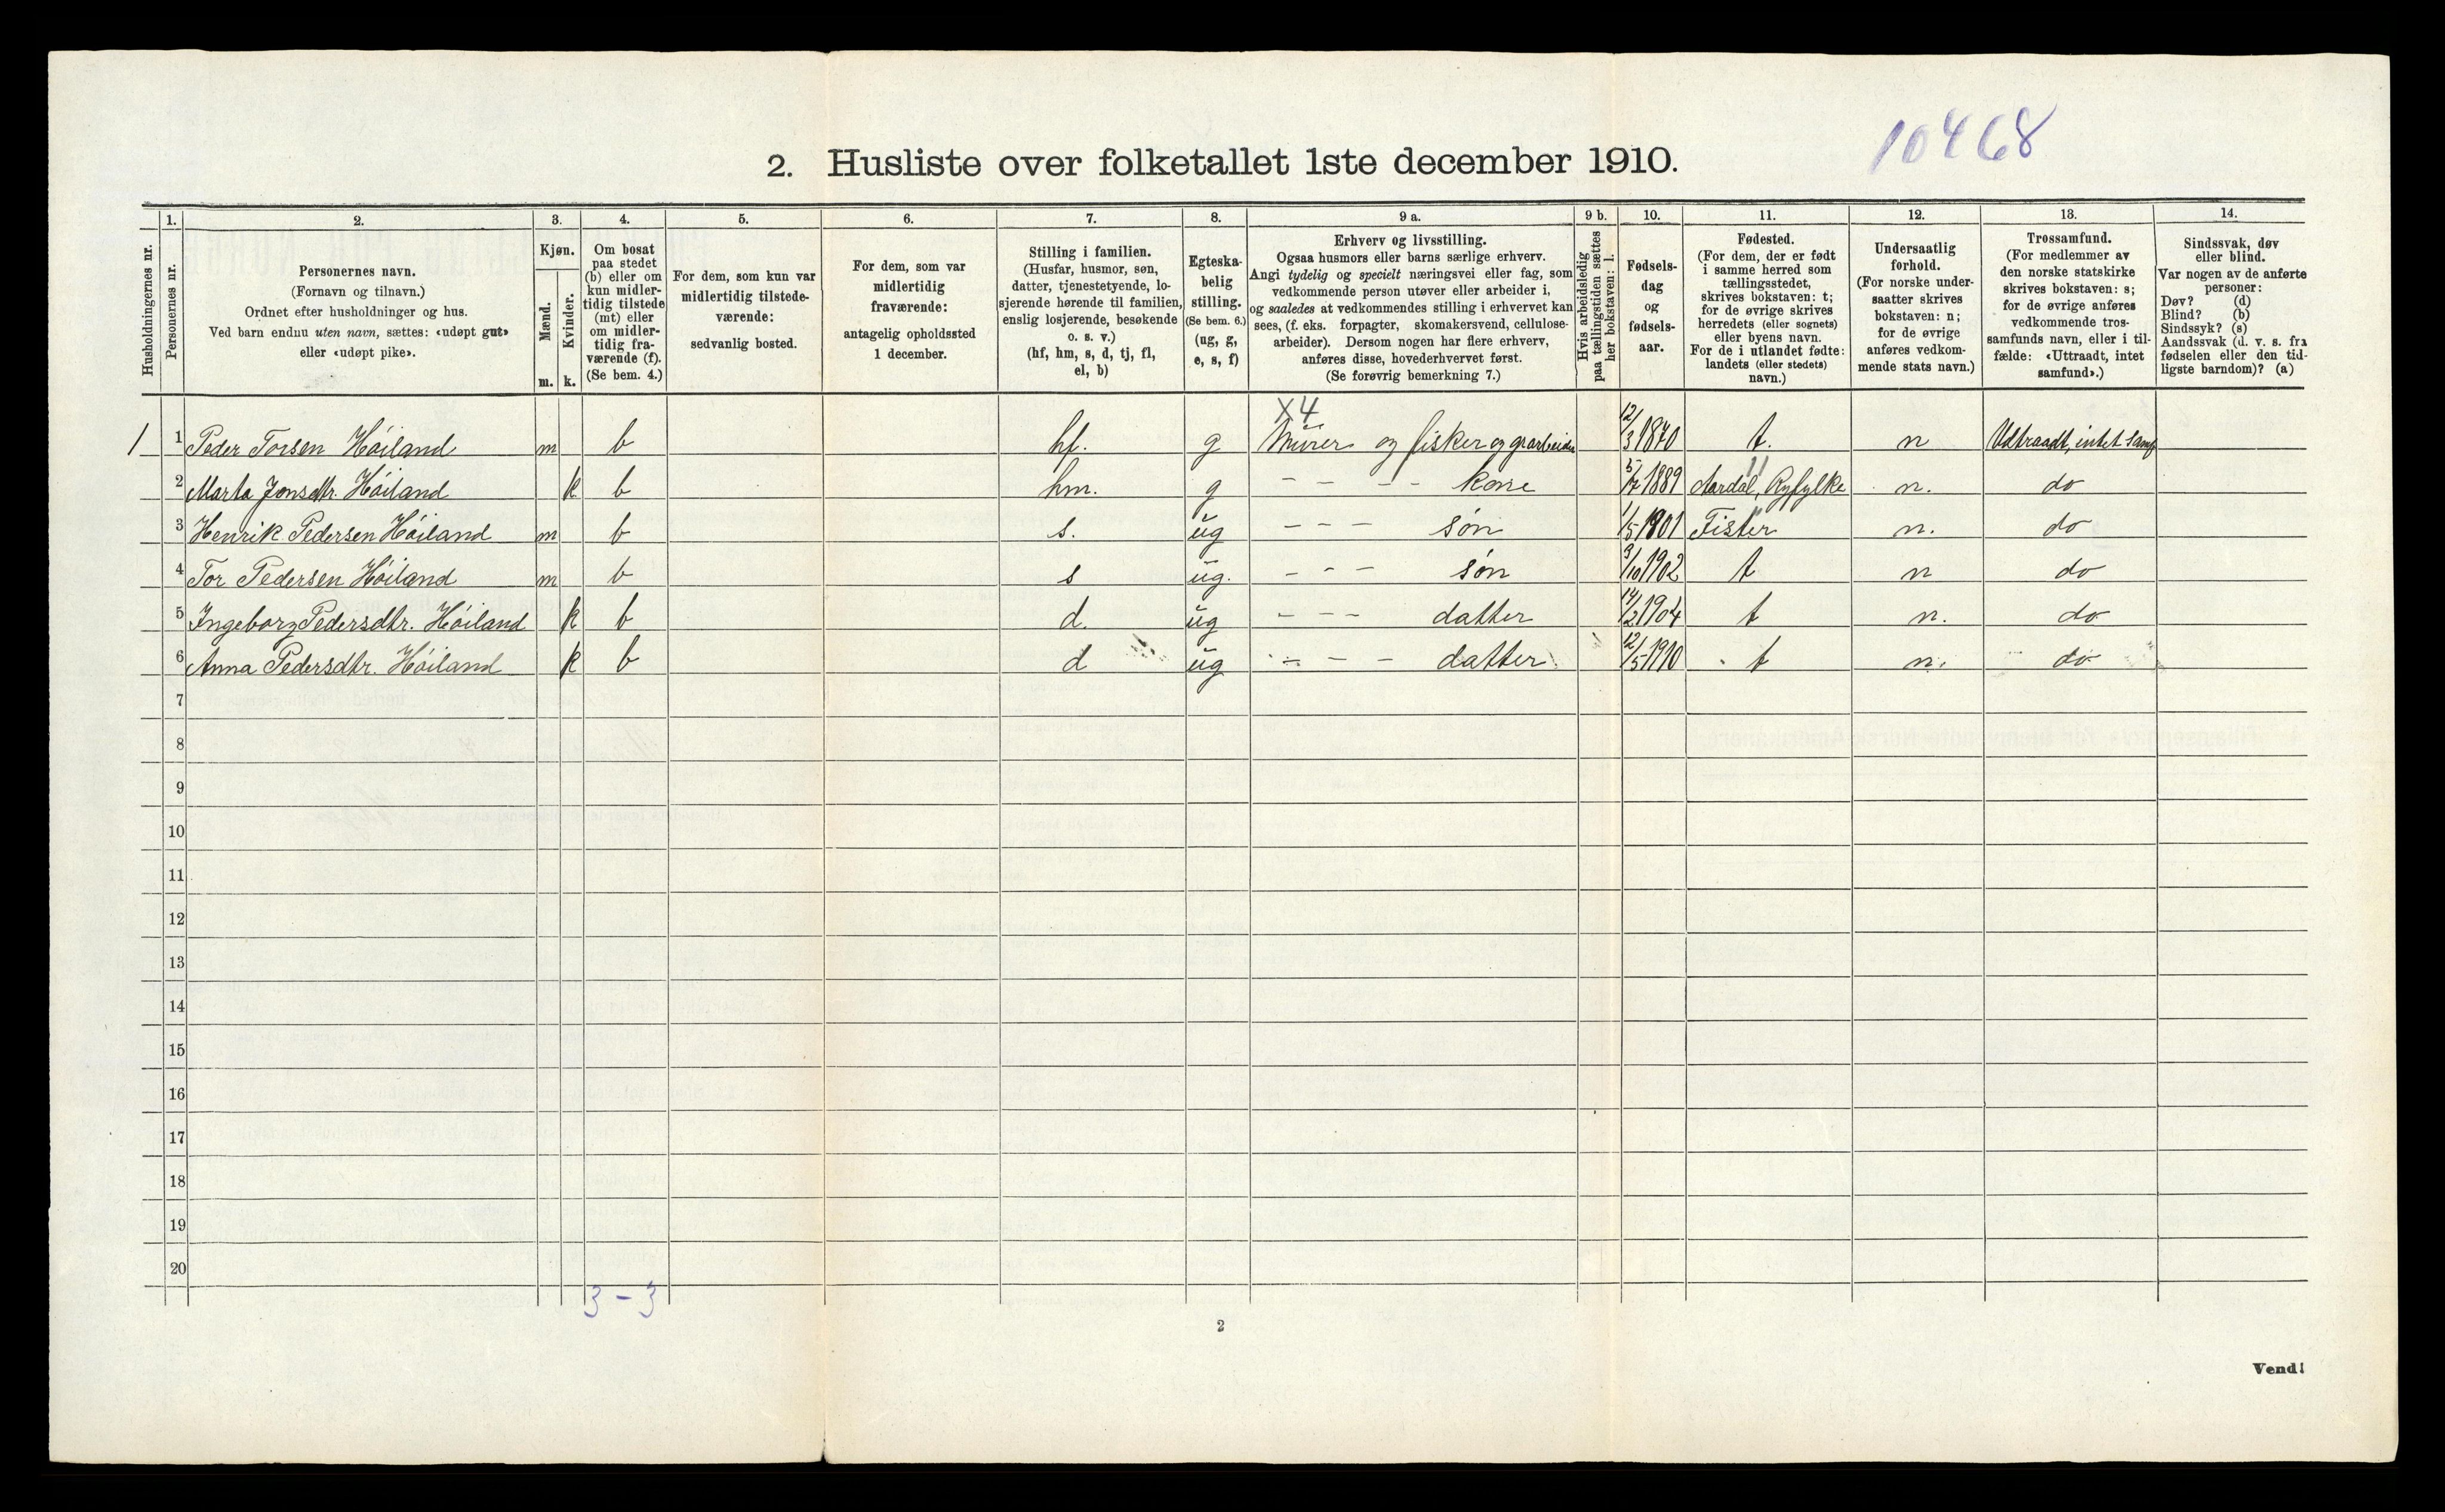 10468
2. Husliste over folketallet 1ste december 1910.
Husholdningernes nr.
1. Personernes nr.
2. Personernes navn.
(Fornavn og tilnavn.)
Ordnet efter husholdninger og hus.
Ved barn endnu uten navn, sættes: «udøpt gut»
eller «udøpt pike».
3. Kjøn.
Mænd. m.
Kvinder. k.
4. Om bosat
paa stedet
(b) eller om
kun midler-
tidig tilstede
(mt) eller
om midler-
tidig fra-
værende (f).
(Se bem. 4.)
5. For dem, som kun var
midlertidig tilstede-
værende:
sedvanlig bosted.
6. For dem, som var
midlertidig
fraværende:
antagelig opholdssted
1 december.
7. Stilling i familien.
(Husfar, husmor, søn,
datter, tjenestetyende, lo-
sjerende hørende til familien,
enslig losjerende, besøkende
o. s. v.)
(hf, hm, s, d, tj, fl,
el, b)
8. Egteska-
belig
stilling.
(Se bem. 6.)
(ug, g,
e, s, f)
9 a. Erhverv og livsstilling.
Ogsaa husmors eller barns særlige erhverv.
Angi tydelig og specielt næringsvei eller fag, som
vedkommende person utøver eller arbeider i,
og saaledes at vedkommendes stilling i erhvervet kan
sees, (f. eks. forpagter, skomakersvend, cellulose-
arbeider). Dersom nogen har flere erhverv,
anføres disse, hovederhvervet først.
(Se forøvrig bemerkning 7.)
9 b. Hvis arbeidsledig
paa tællingstiden sættes
her bokstaven: l.
10. Fødsels-
dag
og
fødsels-
aar.
11. Fødested.
(For dem, der er født
i samme herred som
tællingsstedet,
skrives bokstaven: t;
for de øvrige skrives
herredets (eller sognets)
eller byens navn.
For de i utlandet fødte:
landets (eller stedets)
navn.)
12. Undersaatlig
forhold.
(For norske under-
saatter skrives
bokstaven: n;
for de øvrige
anføres vedkom-
mende stats navn.)
13. Trossamfund.
(For medlemmer av
den norske statskirke
skrives bokstaven: s;
for de øvrige anføres
vedkommende tros-
samfunds navn, eller i til-
fælde: «Uttraadt, intet
samfund».)
14. Sindssvak, døv
eller blind.
Var nogen av de anførte
personer:
Døv? (d)
Blind? (b)
Sindssyk? (s)
Aandssvak (d. v. s. fra
fødselen eller den tid-
ligste barndom)? (a)
X4
1 1 Peder Torsen Höiland m b hf. g Murer og fisker og grarbeider 12/3 1870 t. n Udtraadt, intet Samf
2 Marta Jonsdtr. Höiland k b hm. g - - - - kone 5/7 1889 Aardal, Ryfylke n. do
3 Henrik Pedersen Höiland m b s. ug - - - søn 1/5 1901 Fister n. do
4 Tor Pedersen Höiland m b s ug. - - - søn 9/10 1902 t n do
5 Ingeborg Pedersdtr. Höiland k b d. ug - - - datter 14/2 1904 t n. do
6 Anna Pedersdtr. Höiland k b d ug - - - datter 12/5 1910 t n. do
7
8
9
10
11
12
13
14
15
16
17
18
19
20
3 - 3
2
Vend!